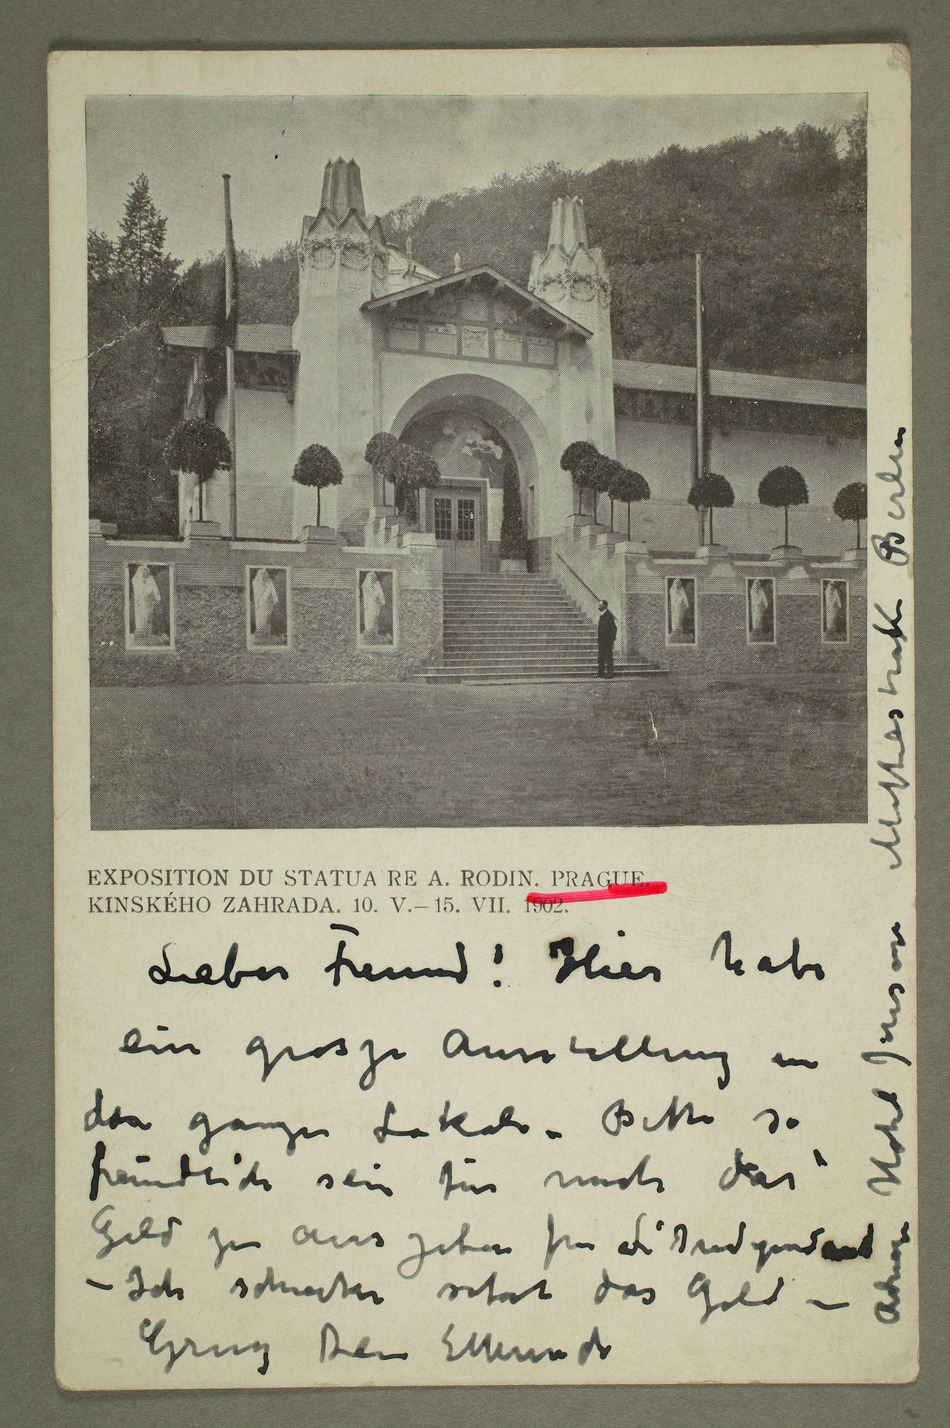 EXPOSITION DU STATUA RE A. RODIN. PRAGUE.
KINSKÉHO ZAHRADA. 10. V.–15. VII. 1902.
Lieber Freund! Hier habe
ein grosze Ausstellung in
der ganze Lokale. Bitte so
freundlich sein für mich das
Geld zu aus geben für
– Ich schicke sofort das Geld –
Gruz Dein
Adresse Hotel Berlin